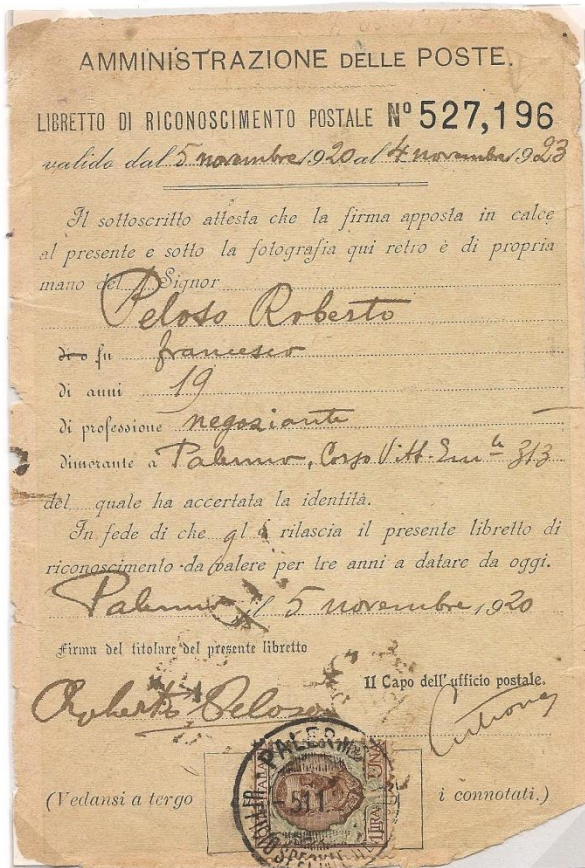 AMMINISTRAZIONE DELLE POSTE.
LIBRETTO DI RICONOSCIMENTO POSTALE Nº 527,196
valido dal 5 novembre 1920 al 4 novembre 1923
Il sottoscritto attesta che la firma apposta in calce
al presente e sotto la fotografia qui retro è di propria
mano del Signor
Peloso Roberto
di o fu francesco
di anni 19
di professione negoziante
dimorante a Palermo, Corso Vitt. Em.le 313
del quale ha accertata la identità.
In fede di che gl rilascia il presente libretto di
riconoscimento da valere per tre anni a datare da oggi.
Palermo il 5 novembre 1920
Firma del titolare del presente libretto
Il Capo dell'ufficio postale.
Roberto Peloso
PALERMO
5 11
UNA LIRA
(Vedansi a tergo i connotati.)